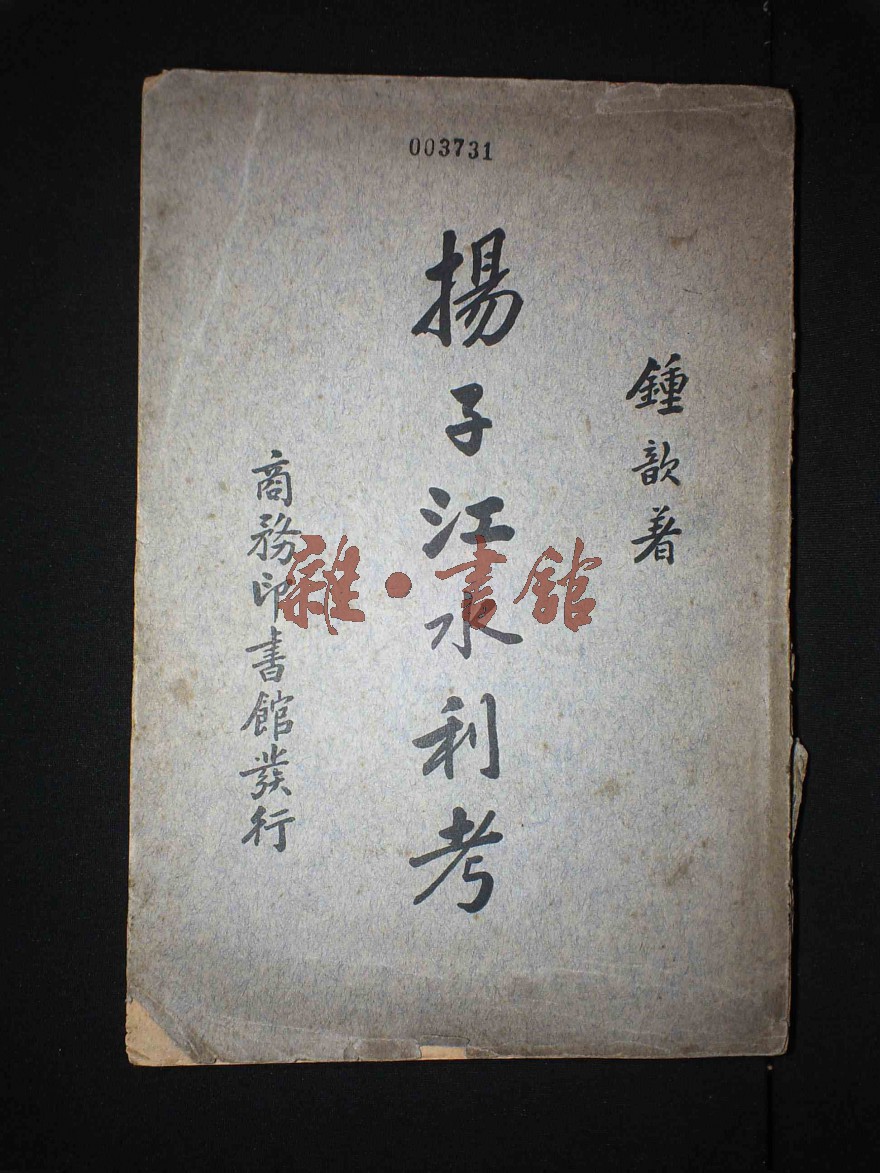 003731
鍾歆著
揚子江水利考
商務印書館發行
雜·書館